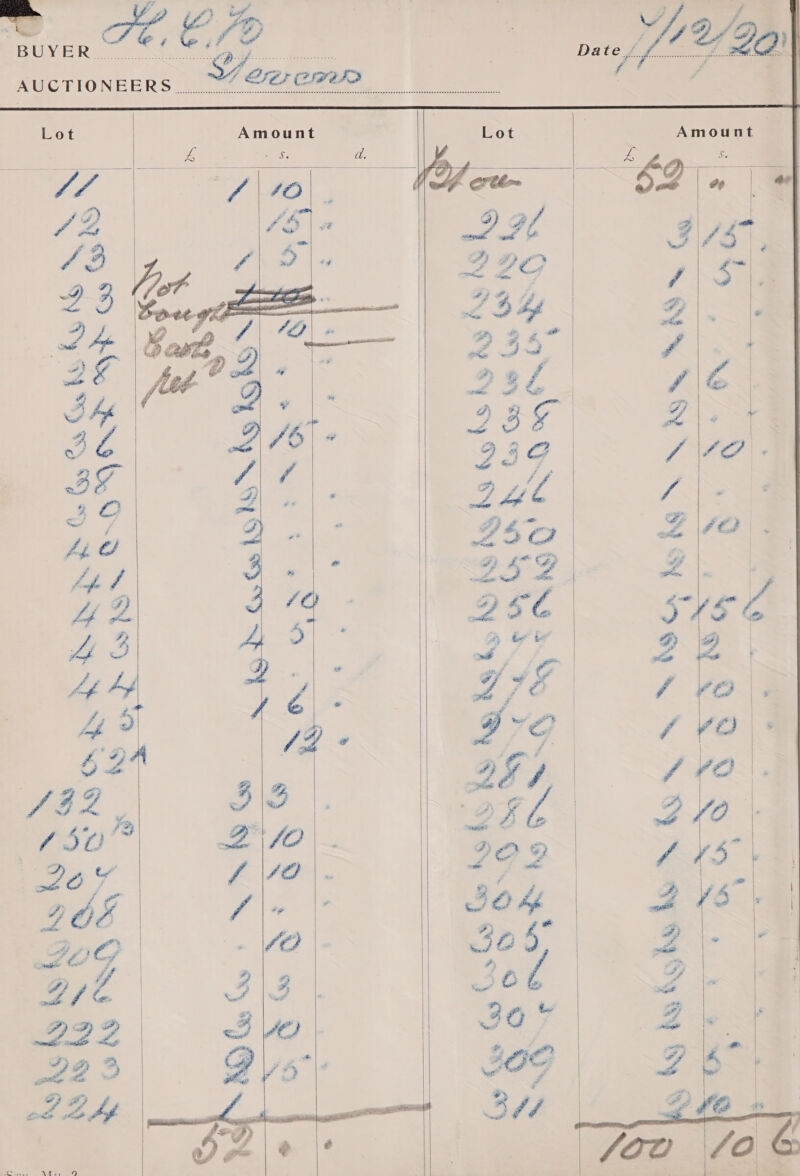 BUYER H.C.Jo
Date 7/12/20
AUCTIONEERS Stevens
Lot Amount
£ s. d.
11 1 10 "
12 15 "
13 1 5 "
23 Not bought 1 10 "
24 Cash 1 10 "
28 ret'd 2 " "
34 2 " "
36 2 15 "
38 1 1
39 2 " "
40 2 " "
41 3 " "
42 3 10 "
43 4 5 "
44 2 " "
45 1 6 "
52A 12 "
132 3 3 "
150/3 2 10
207 1 10 "
208 1 " "
209 " 10 "
216 3 3 "
222 3 10 "
223 2 15 "
224 1
52 " "
Lot Amount
£ s.
52 " "
226 3 15 "
229 1 5 "
234 2 " "
235 1 "
236 1 6 "
238 2 " "
239 1 10 "
246 1 " "
250 2 10 "
252 2 " "
256 5 15 6
277 2 2 "
278 1 10 "
279 1 10 "
281 1 10 "
286 2 10 "
292 1 15 "
304 2 15 "
305 2 " "
306 2 " "
307 2 " "
309 2 5 "
311 2 10 "
100 10 6